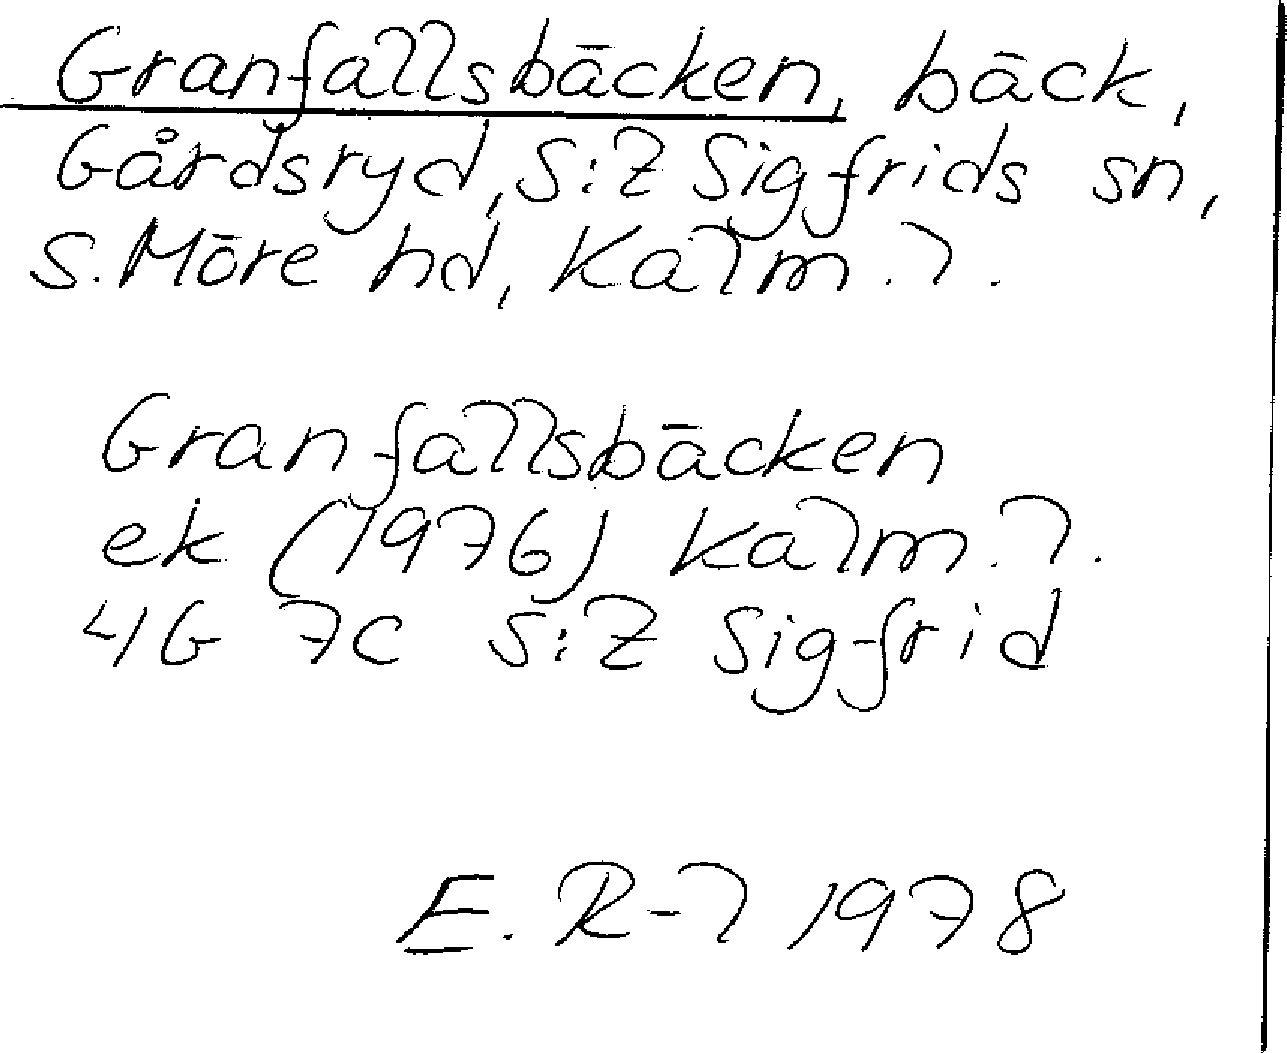 Granfallsbäcken, bäck,
Gårdsryd, S:t Sigfrids sn,
S. Möre hd, Kalm. l.
Granfallsbäcken
ek (1976) Kalm. l.
4G 7c S:t Sigfrid
E. R-l 1978